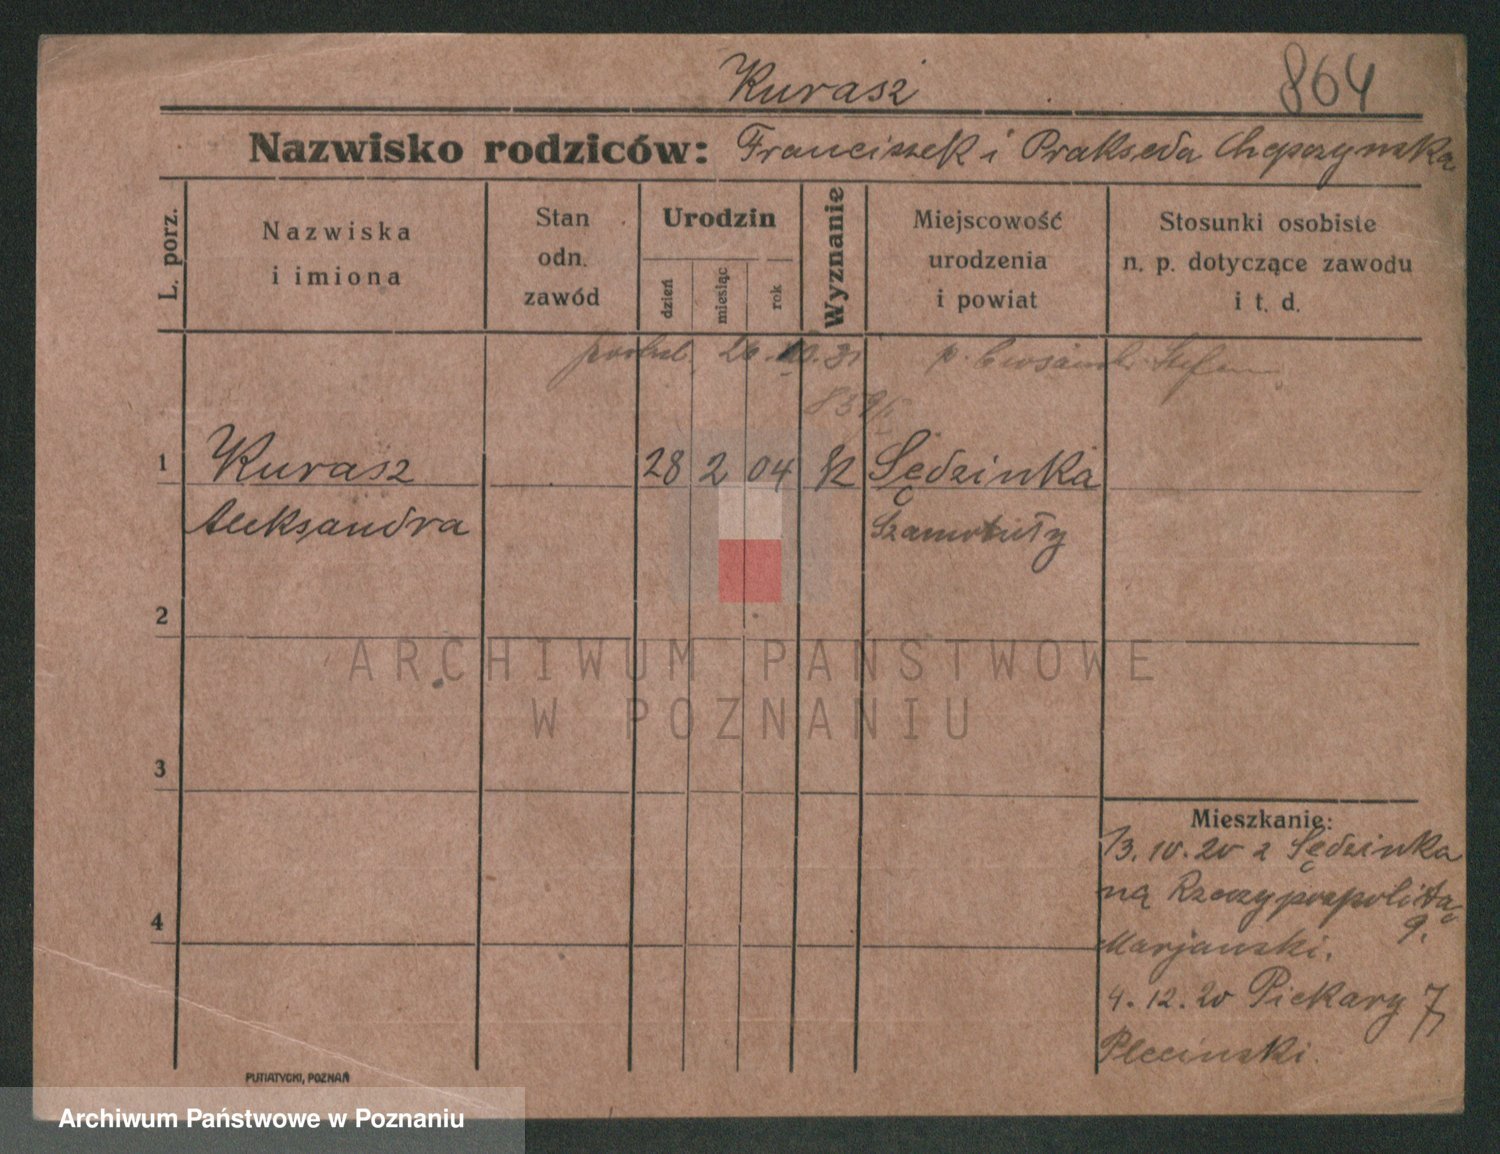 Kurasz
864
Nazwisko rodziców: Franciszek i Prakseda Chepczynska
L. porz.
Nazwiska
i imiona
Stan
odn.
zawód
Urodzin
dzień
miesiąc
rok
Wyznanie
Miejscowość
urodzenia
i powiat
Stosunki osobiste
n. p. dotyczące zawodu
i t. d.
1 Kurasz 28 2 04 K Sędzinka
Aleksandra Szamotuły
2
ARCHIWUM PAŃSTWOWE
W POZNANIU
3
Mieszkanie:
13.10.20 z Sędzinka
na Rzeczypospolita
9.
4
Marjanski.
4.12.20 Piekary 7
Plecinski.
PUTIATYCKI, POZNAŃ
Archiwum Państwowe w Poznaniu